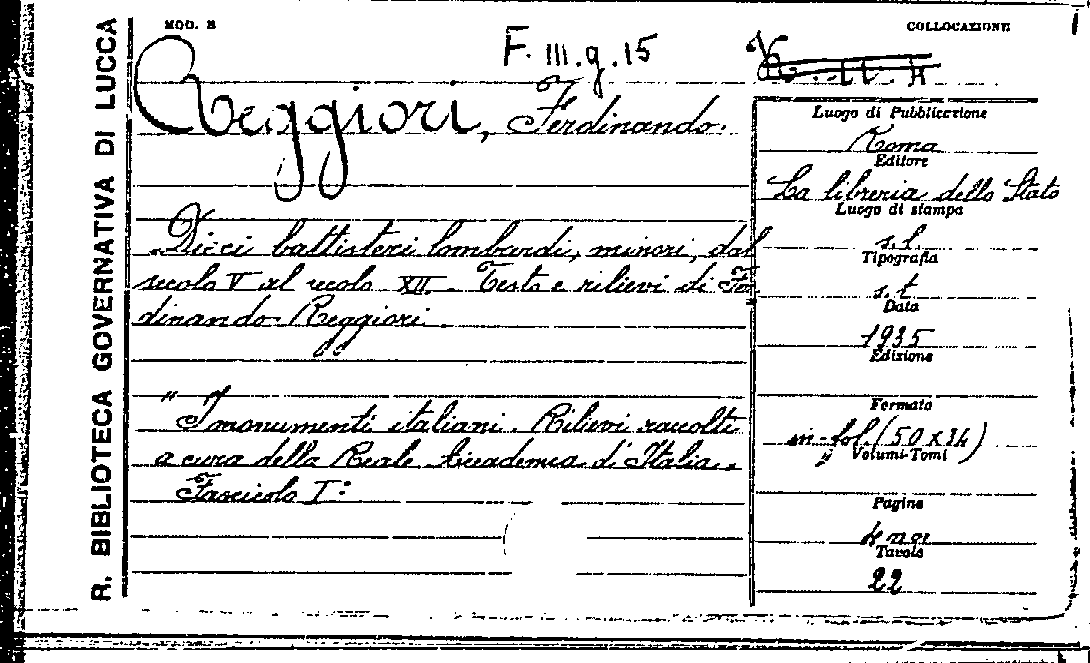 MOD. B
COLLOCAZIONE
F. III. g. 15
R. BIBLIOTECA GOVERNATIVA DI LUCCA
Reggiori, Ferdinando.
Dieci battisteri lombardi, minori, dal
secolo V al secolo XII. Testo e rilievi di Fer
dinando Reggiori.
"I monumenti italiani. Rilievi raccolti
a cura della Reale Accademia d'Italia.
Fascicolo I:
Luogo di Pubblicazione
Roma
Editore
La libreria dello Stato
Luogo di stampa
s.l.
Tipografia
s.t
Data
1935
Edizione
Formato
in-fol. (50x34)
Volumi-Tomi
Pagine
4
Tavole
22